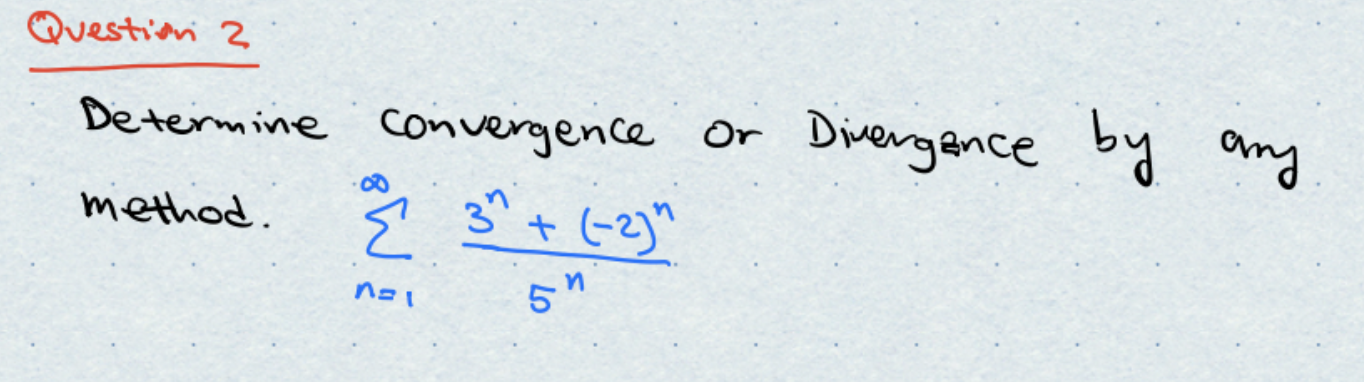 Question 2
Determine convergence or Divergence by any
method. ∞ ∑ n=1 3ⁿ + (-2)ⁿ / 5ⁿ